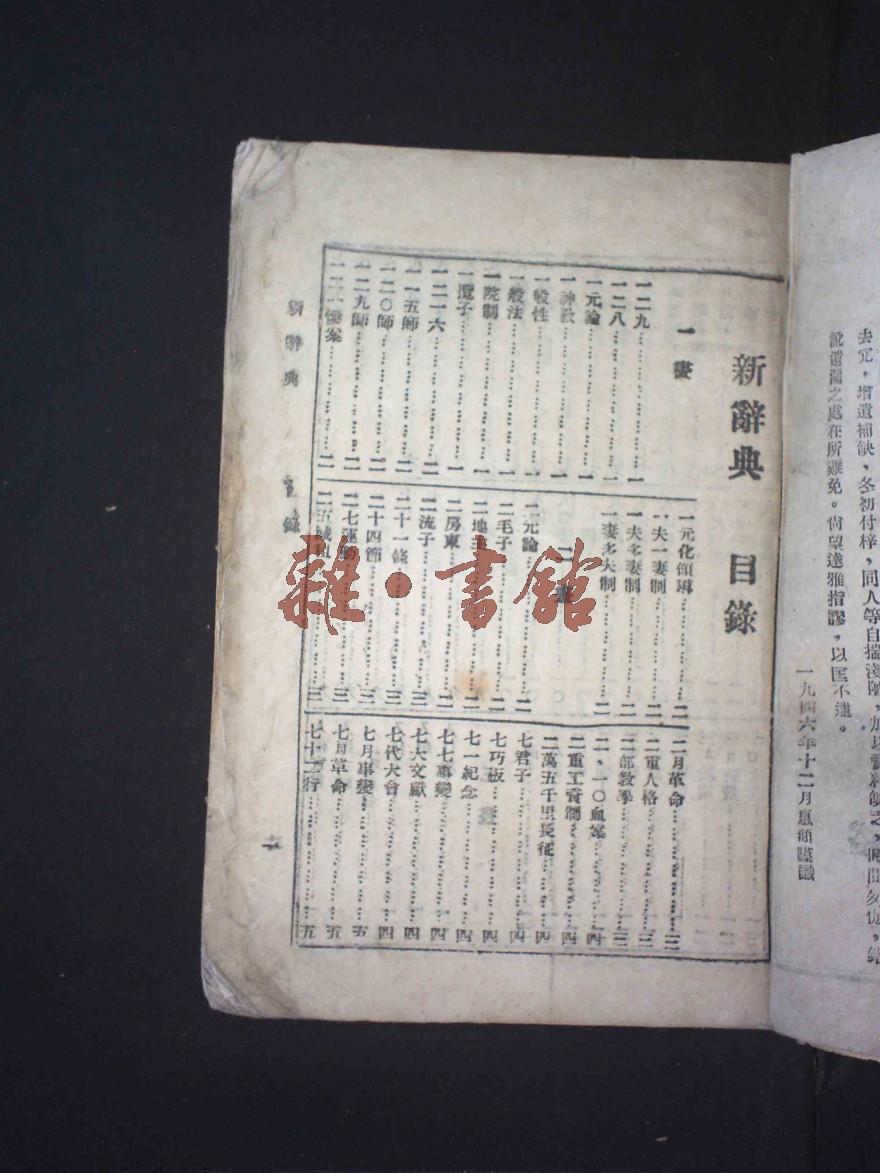 去冗,增遺補缺,冬初付梓,同人等自揣淺陋,加以資料缺乏,時間匆促,錯
訛遺漏之處在所難免。尙望達雅指謬,以匡不逮。
一九四六年十二月
新辭典 目錄
一畫
一二九……一
一二八……一
一元論……一
一神敎……一
一般性……一
一般法……一
一院制……一
一攬子……一
一二一六……二
一一五師……二
一二〇師……二
一二九師……二
一二一慘案……二
一元化領導……二
一夫一妻制……二
一夫多妻制……二
一妻多夫制……二
二畫
二元論……二
二毛子……二
二地主……二
二房東……二
二流子……三
二十一條……三
二十四節……三
二七運動……三
二五減租……三
二月革命……三
二重人格……三
二部敎學……三
二、一〇血案……四
二重工資制……四
二萬五千里長征……四
七君子……四
七巧板……四
七一紀念……四
七七事變……四
七六文獻……四
七代大會……四
七月事變……五
七月革命……五
七十二行……五
新辭典 目錄 一
雜·書館